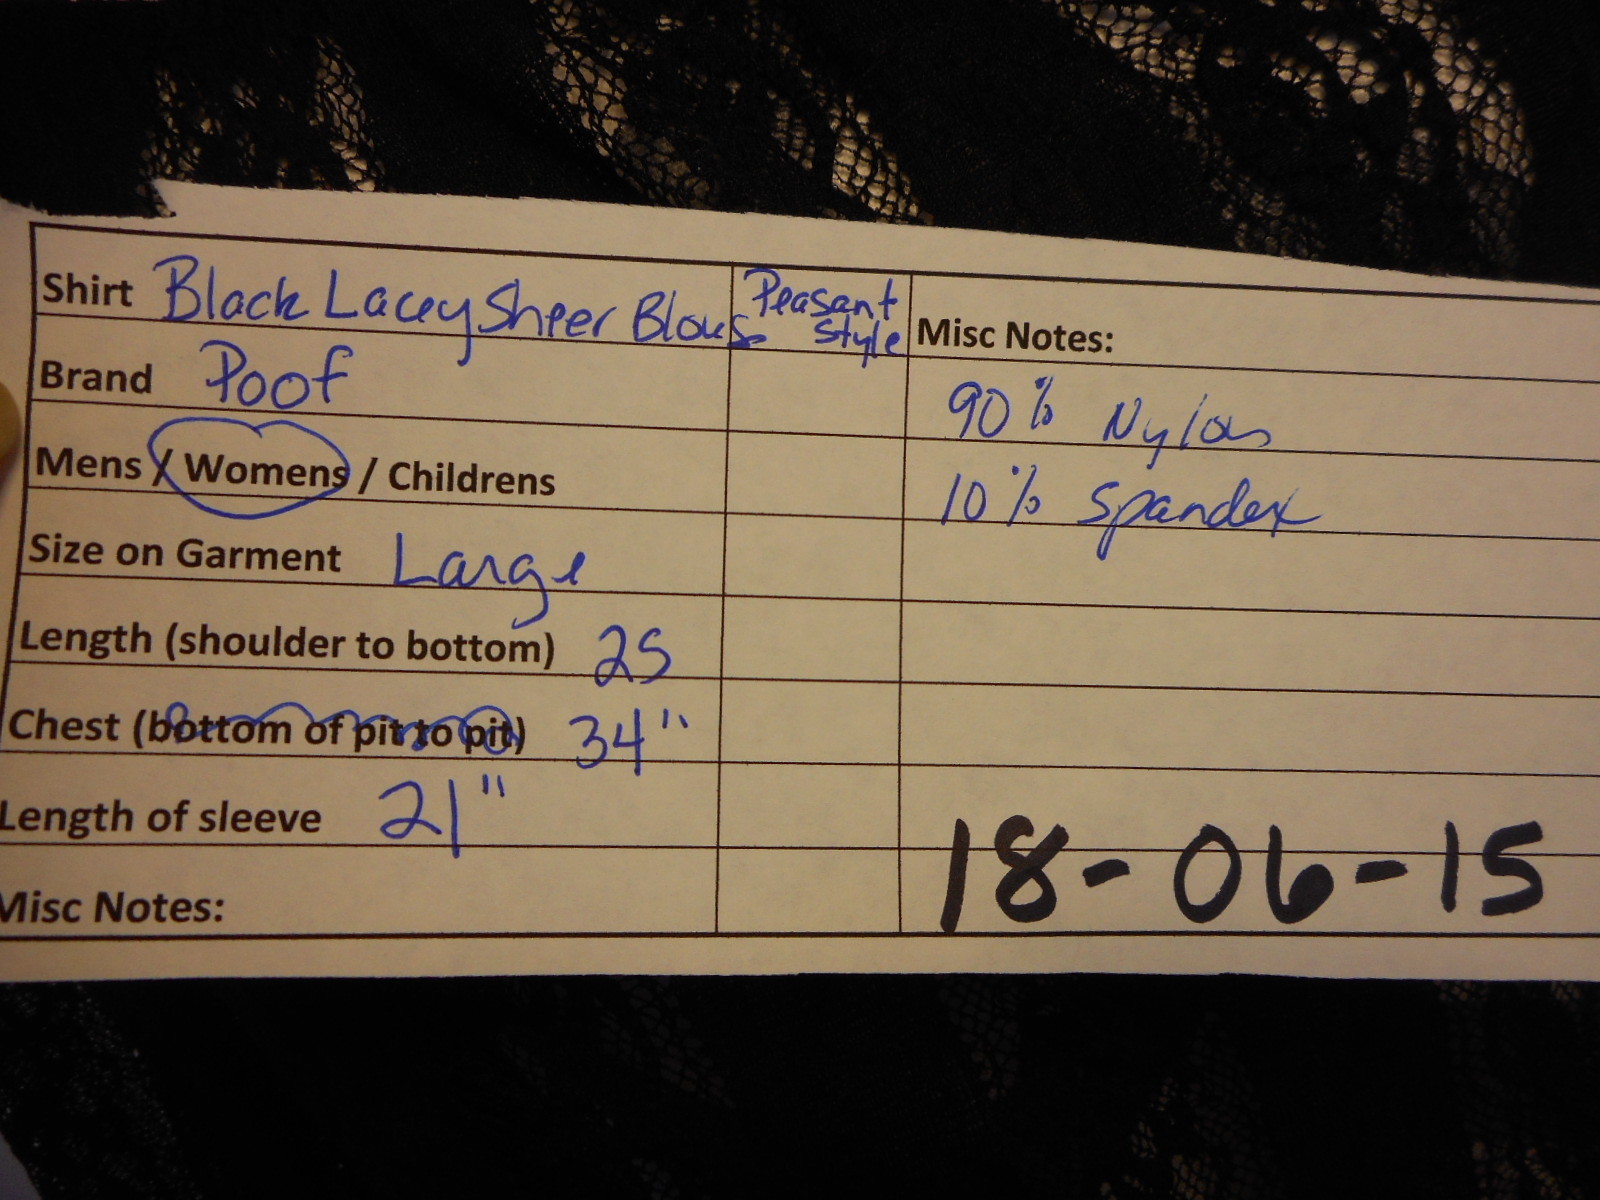 Shirt Black Lacey Sheer Blouse Peasant Style
Misc Notes:
Brand Poof
90% Nylon
Mens / Womens / Childrens
10% Spandex
Size on Garment Large
Length (shoulder to bottom) 25
Chest (bottom of pit to pit) 34"
Length of sleeve 21"
18-06-15
Misc Notes: